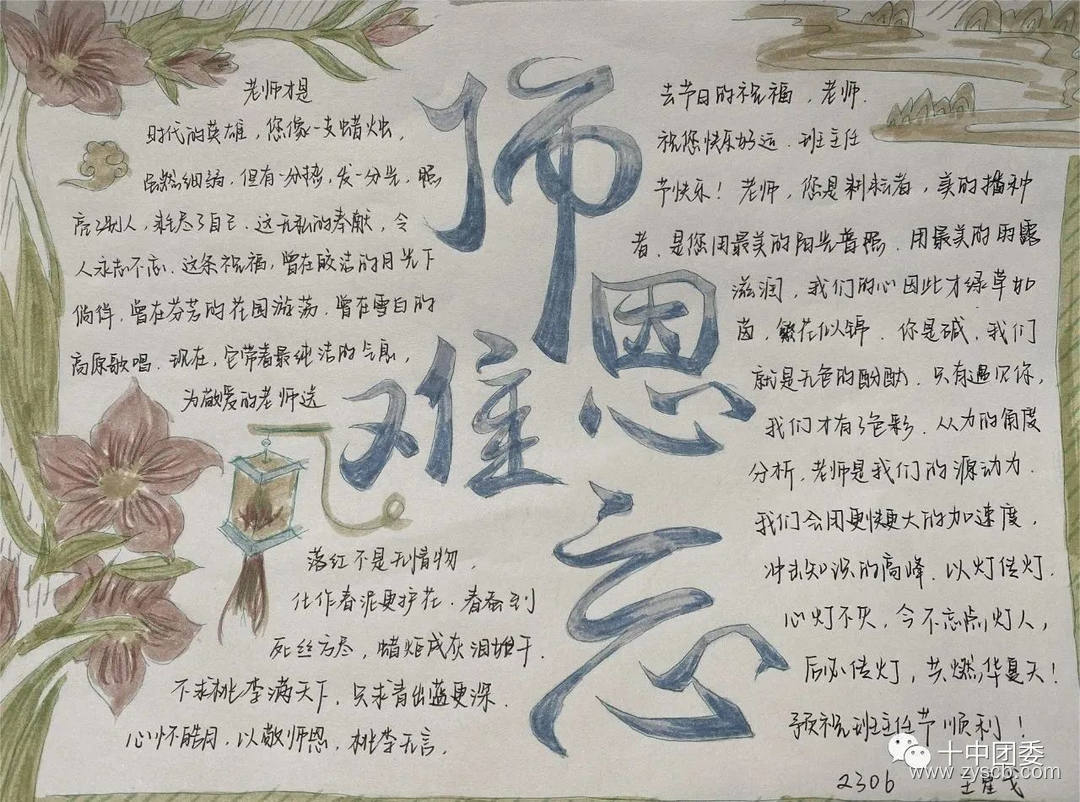 师恩难忘
老师才是
时代的英雄，您像一支蜡烛，
虽然细弱，但有一分热，发一分光，照
亮了别人，耗尽了自己。这无私的奉献，令
人永志不忘。这条祝福，曾在皎洁的月光下
倘佯，曾在芬芳的花园游荡，曾在雪白的
高原歌唱，现在，它带着最纯洁的气息，
为敬爱的老师送
去节日的祝福，老师.
祝您快乐好运，班主任
节快乐！老师，您是耕耘者，美的播种
者，是您用最美的阳光普照，用最美的雨露
滋润，我们的心因此才绿草如
茵，繁花似锦。你是碱，我们
就是无色的酚酞，只有遇见你，
我们才有了色彩，从力的角度
分析，老师是我们的源动力.
我们会用更快更大的加速度，
冲击知识的高峰，以灯传灯.
心灯不灭，今不忘点灯人，
后必传灯，共燃华夏天！
预祝班主任节顺利！
落红不是无情物，
化作春泥更护花。春蚕到
死丝方尽，蜡炬成灰泪始干.
不求桃李满天下，只求青出蓝更深.
心怀皓月，以敬师恩，桃李无言，
2306 王星戈
十中团委
www.zyscb.com